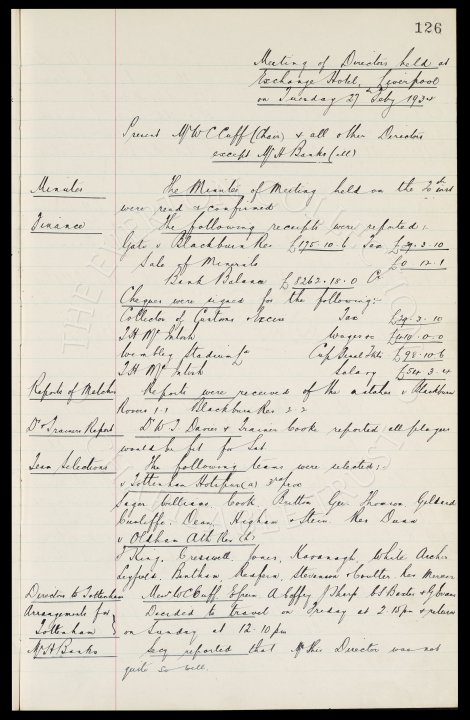 126
Meeting of Directors held at
Exchange Hotel, Liverpool
on Tuesday 27th Feby 1934
Present Mr W C Cuff (Chair) & all other Directors
except Mr A Banks (ill)
Minutes The Minutes of Meeting held on the 20th inst
were read & confirmed
Finance The following receipts were reported;
Gate v Blackburn Res £175-10-6 Tax £29-3-10
Sale of Minerals £0-12-1
Bank Balance £8262-18-0 Cr
Cheques were signed for the following:-
Collector of Customs & Excise Tax £29-3-10
T H McIntosh Wages &c £410-0-0
Wembley Stadium Ld Cup Final Tkts £98-10-6
T H McIntosh Salary £54-3-4
Reports of Matches Reports were received of the matches v Blackburn
Rovers 1-1 Blackburn Res 2-2
Dr & Trainers Report Dr W J Davies & Trainer Cooke reported all players
would be fit for Sat
Team Selections The following teams were selected:-
v Tottenham Hotspur (a) 3rd prox
Sagar Williams Cook Britton Gee Thomson Geldard
Cunliffe Dean Higham & Stein. Res Dunn
v Oldham Ath Res (h)
J King, Cresswell, Jones, Kavanagh, White Archer
Leyfield, Bentham, Reaforn, Stevenson & Coulter. Res Mercer
Directors to Tottenham Messrs W C Cuff A Coffey J Sharp C S Baxter & G Evans
Arrangements for Decided to travel on Friday at 2-15pm & return
Tottenham on Sunday at 12-10pm
Mr A Banks Secy reported that this Director was not
quite so well.
THE EVERTON COLLECTION